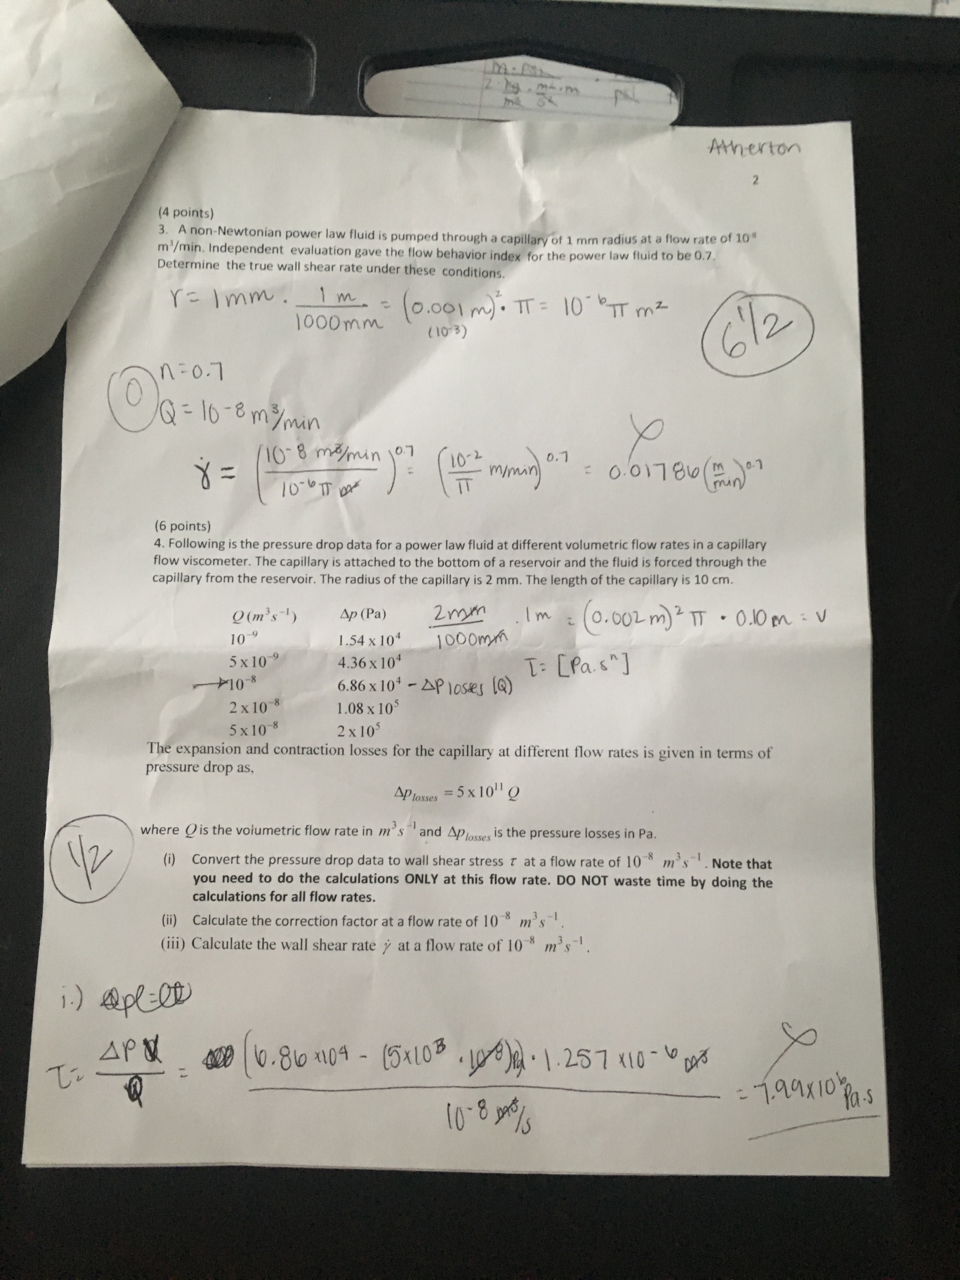 Atherton
2
(4 points)
3. A non-Newtonian power law fluid is pumped through a capillary of 1 mm radius at a flow rate of 10⁻⁸
m³/min. Independent evaluation gave the flow behavior index for the power law fluid to be 0.7.
Determine the true wall shear rate under these conditions.
r = 1mm · 1 m / 1000mm = (0.001 m)² · π = 10⁻⁶ π m²
(10⁻³)
6 1/2
0
n = 0.7
Q = 10⁻⁸ m³/min
γ̇ = (10⁻⁸ m³/min / 10⁻⁶ π m²)^0.7 = (10⁻² / π m/min)^0.7 = 0.01786 (m/min)^0.7
(6 points)
4. Following is the pressure drop data for a power law fluid at different volumetric flow rates in a capillary
flow viscometer. The capillary is attached to the bottom of a reservoir and the fluid is forced through the
capillary from the reservoir. The radius of the capillary is 2 mm. The length of the capillary is 10 cm.
Q (m³s⁻¹) Δp (Pa) 2mm / 1000mm · 1m = (0.002 m)² π · 0.10 m = V
10⁻⁹ 1.54 x 10⁴
5 x 10⁻⁹ 4.36 x 10⁴ τ = [Pa·sⁿ]
→10⁻⁸ 6.86 x 10⁴ - ΔP losses (Q)
2 x 10⁻⁸ 1.08 x 10⁵
5 x 10⁻⁸ 2 x 10⁵
The expansion and contraction losses for the capillary at different flow rates is given in terms of
pressure drop as,
Δp losses = 5 x 10¹¹ Q
where Q is the volumetric flow rate in m³s⁻¹ and Δp losses is the pressure losses in Pa.
1/2
(i) Convert the pressure drop data to wall shear stress τ at a flow rate of 10⁻⁸ m³s⁻¹. Note that
you need to do the calculations ONLY at this flow rate. DO NOT waste time by doing the
calculations for all flow rates.
(ii) Calculate the correction factor at a flow rate of 10⁻⁸ m³s⁻¹.
(iii) Calculate the wall shear rate γ̇ at a flow rate of 10⁻⁸ m³s⁻¹.
i.)
τ = ΔP V / Q = (6.86 x10⁴ - (5x10³) Pa) · 1.257 x10⁻⁶ m³ / 10⁻⁸ m³/s = 7.99x10⁶ Pa·s